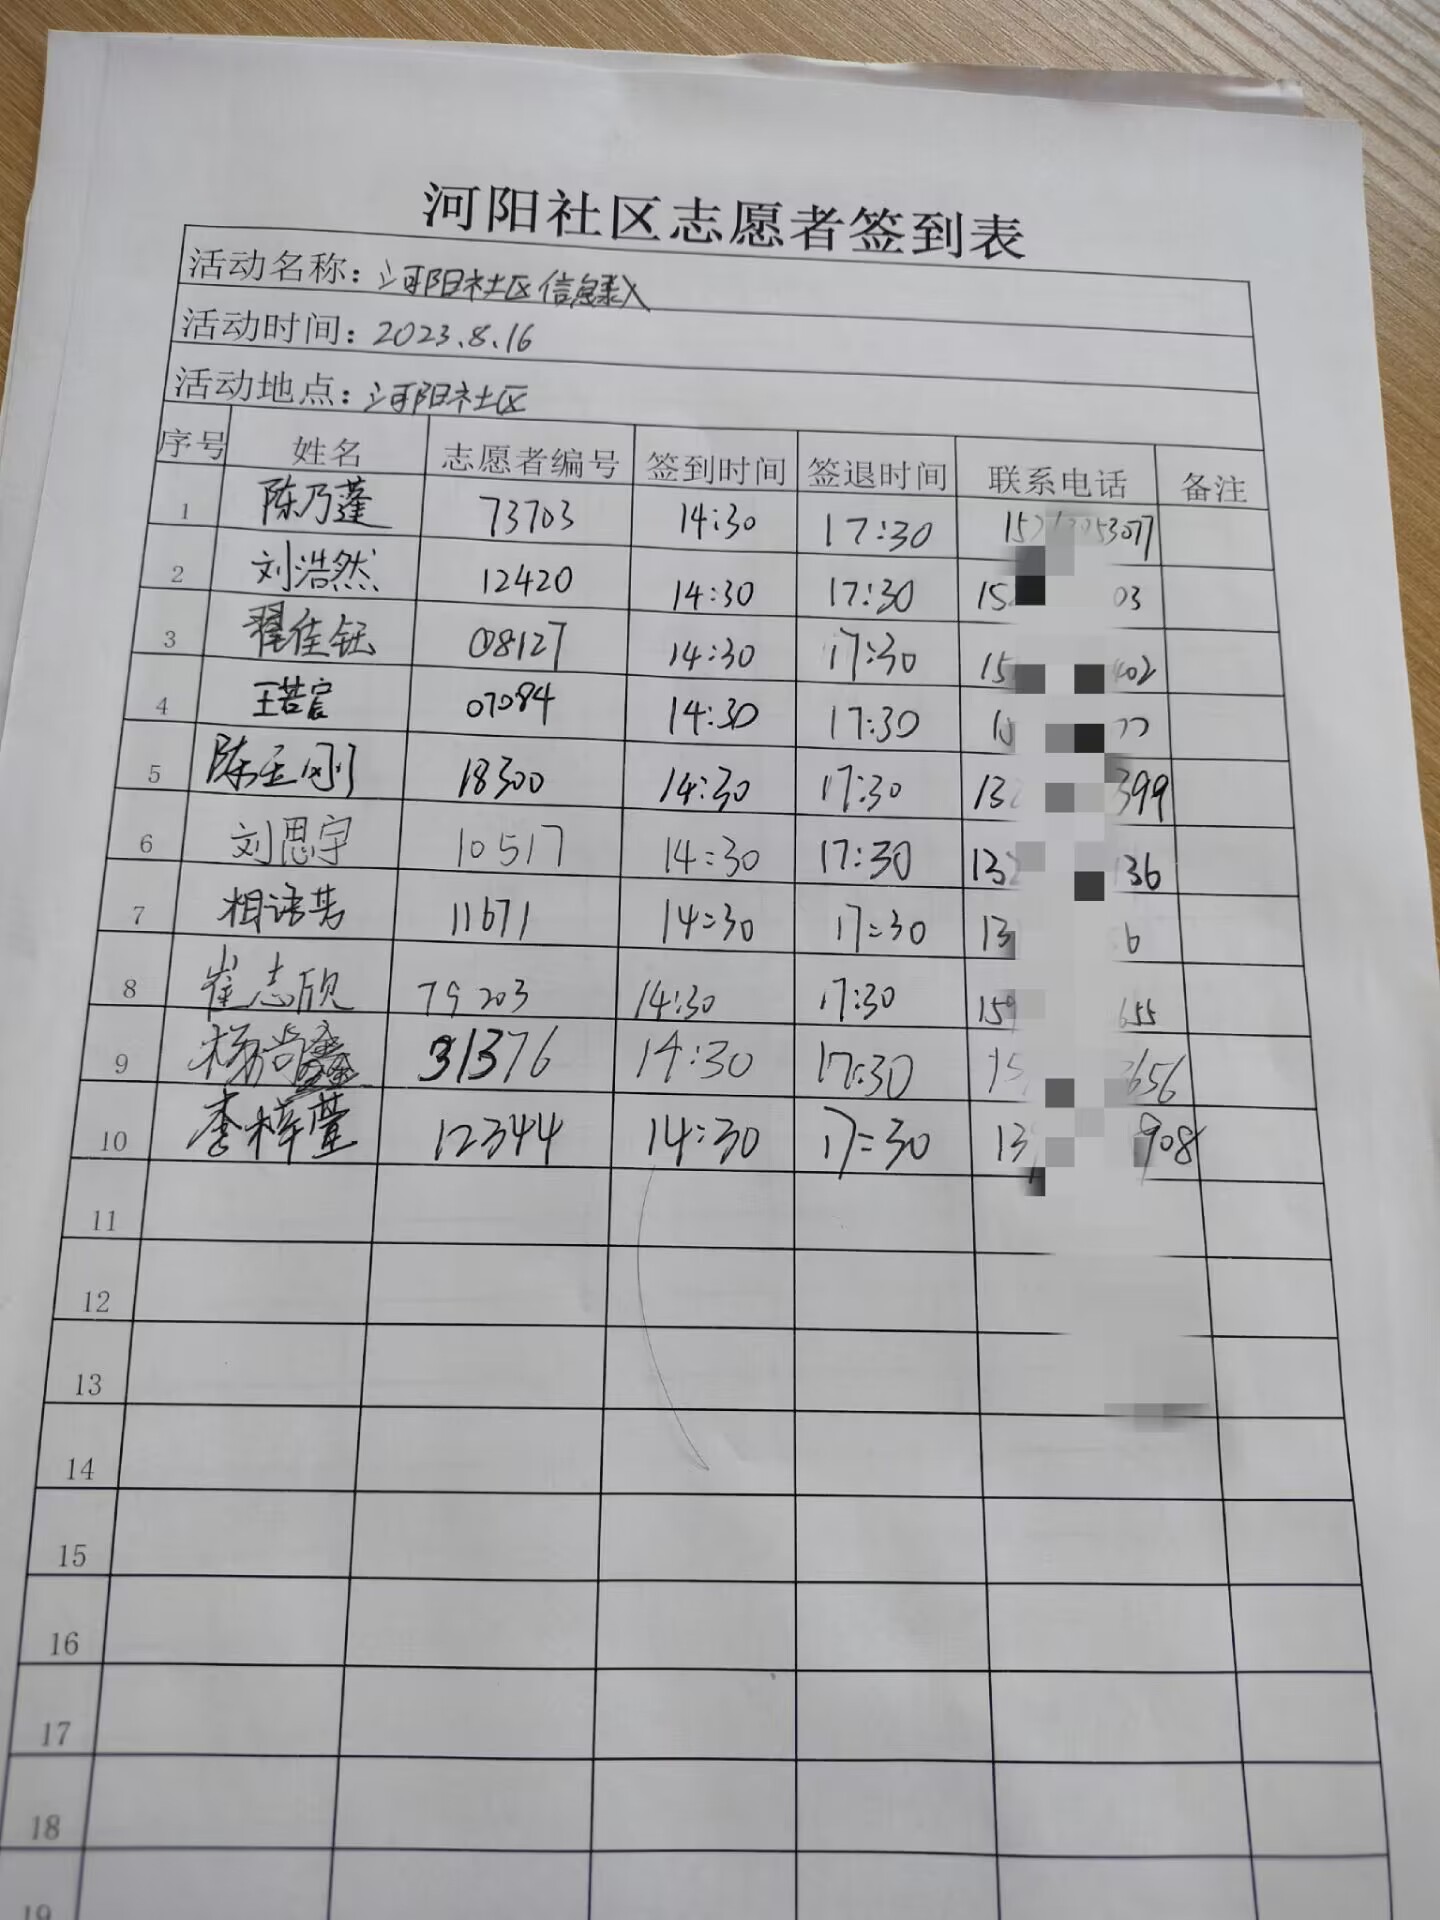 河阳社区志愿者签到表
活动名称：河阳社区信息录入
活动时间：2023.8.16
活动地点：河阳社区
序号 姓名 志愿者编号 签到时间 签退时间 联系电话 备注
1 陈乃蓬 73703 14:30 17:30
2 刘浩然 12420 14:30 17:30
3 翟佳钰 08127 14:30 17:30
4 王若宸 07084 14:30 17:30
5 陈玉刚 18300 14:30 17:30
6 刘思宇 10517 14:30 17:30
7 相语芳 11671 14:30 17:30
8 崔志欣 79203 14:30 17:30
9 杨尚鑫 31376 14:30 17:30
10 李梓萱 12344 14:30 17:30
11
12
13
14
15
16
17
18
19